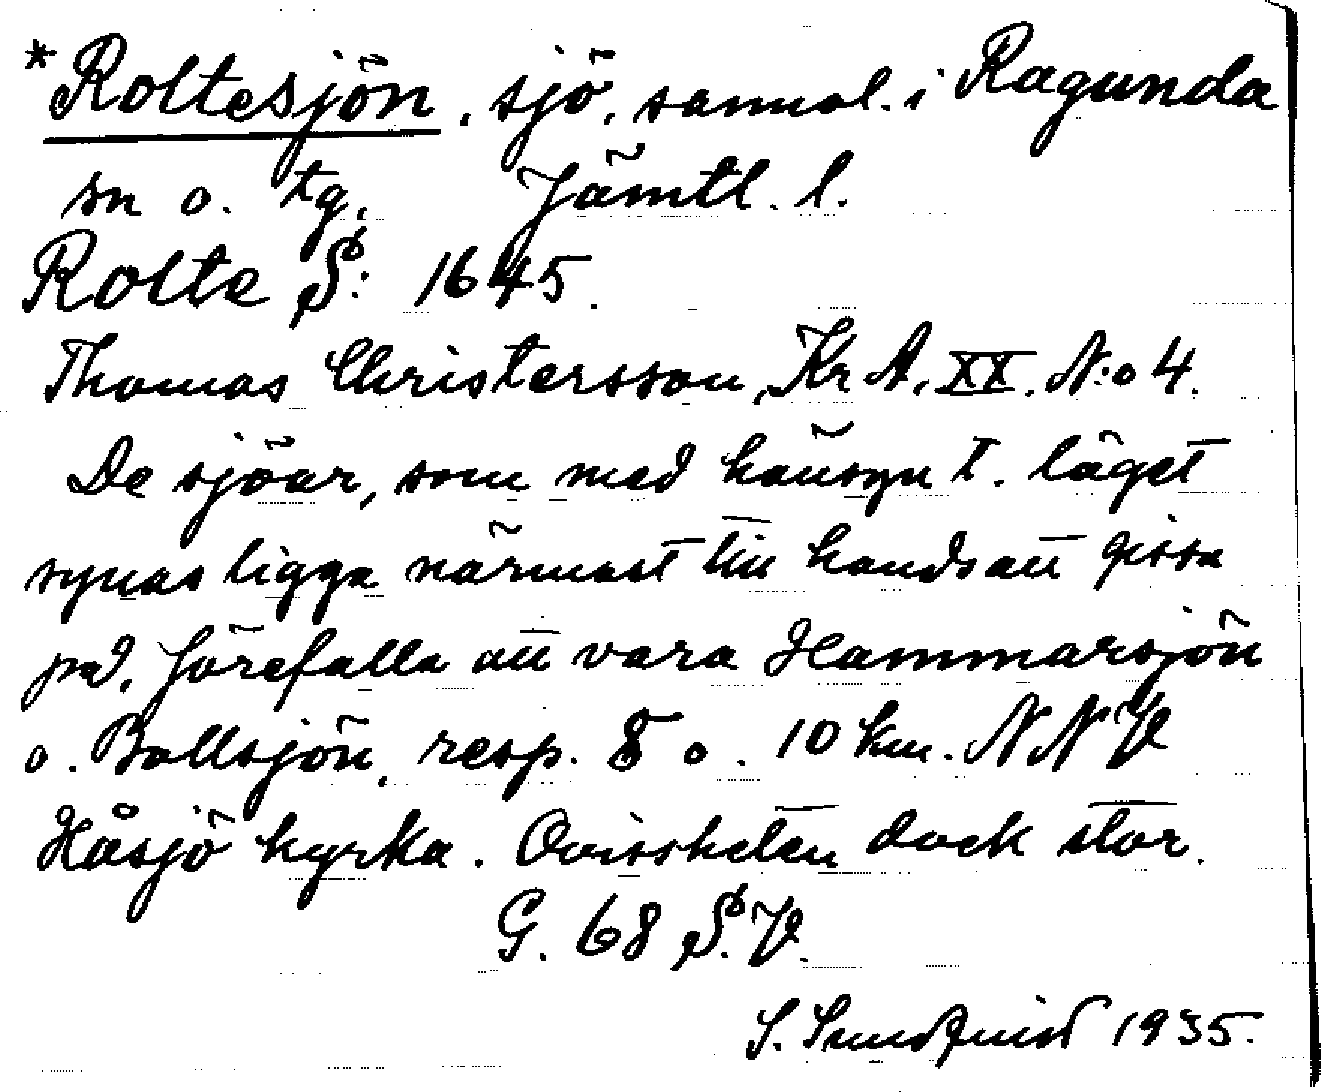 *Roltesjön, sjö, sannol. i Ragunda
sn o. tg. Jämtl. l.
Rolte S: 1645.
Thomas Christersson, Kr A, XX. N:o 4.
De sjöar, som med hänsyn t. läget
synas ligga närmast till hands att gissa
på, förefalla att vara Hammarsjön
o. Bollsjön, resp. 8 o. 10 km. NNV
Håsjö kyrka. Ovissheten dock stor.
G. 68 S.V.
S. Sundquist 1935.